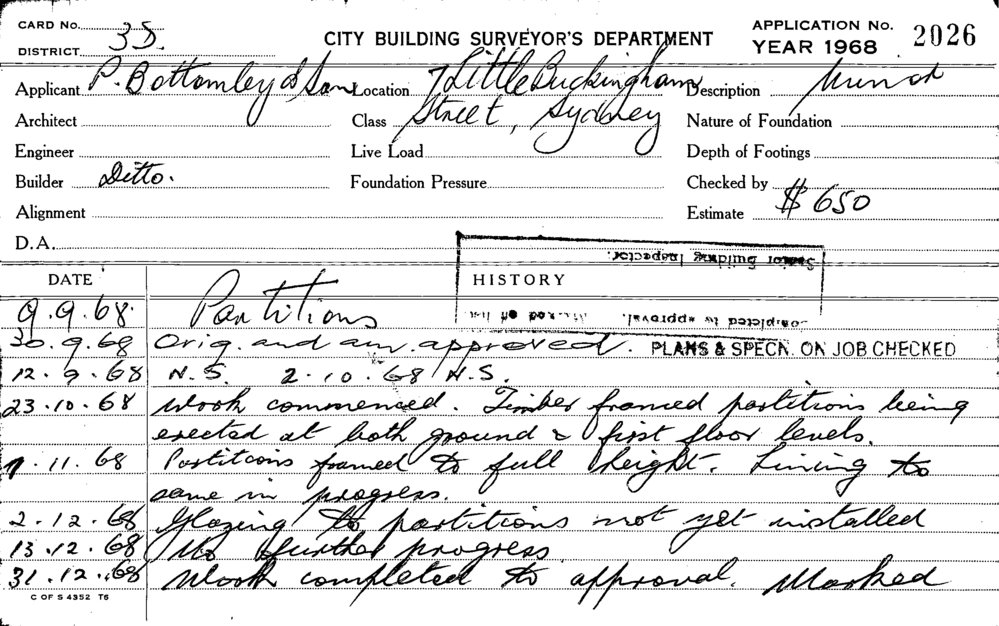 CARD No. 35.
DISTRICT
CITY BUILDING SURVEYOR'S DEPARTMENT
APPLICATION No. 2026
YEAR 1968
Applicant P. Bottomley & Son Location 7 Little Buckingham Description
Architect Class Street, Sydney Nature of Foundation
Engineer Live Load Depth of Footings
Builder Ditto. Foundation Pressure Checked by
Alignment Estimate $650
D.A.
Senior Building Inspector.
DATE HISTORY
Completed to approval. Marked off list
9.9.68. Partitions
30.9.68 Orig. and am. approved. PLANS & SPECN. ON JOB CHECKED
12.9.68 N.S. 2.10.68 N.S.
23.10.68 Work commenced. Timber framed partitions being
erected at both ground & first floor levels.
7.11.68 Partitions framed to full height. Lining to
same in progress.
2.12.68 Glazing to partitions not yet installed
13.12.68 No further progress
31.12.68 Work completed to approval. Marked
C OF S 4352 T6